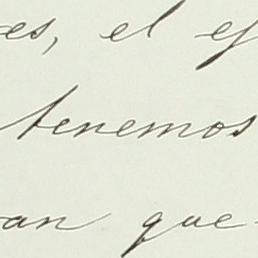 es, el ej
tenemos
an que